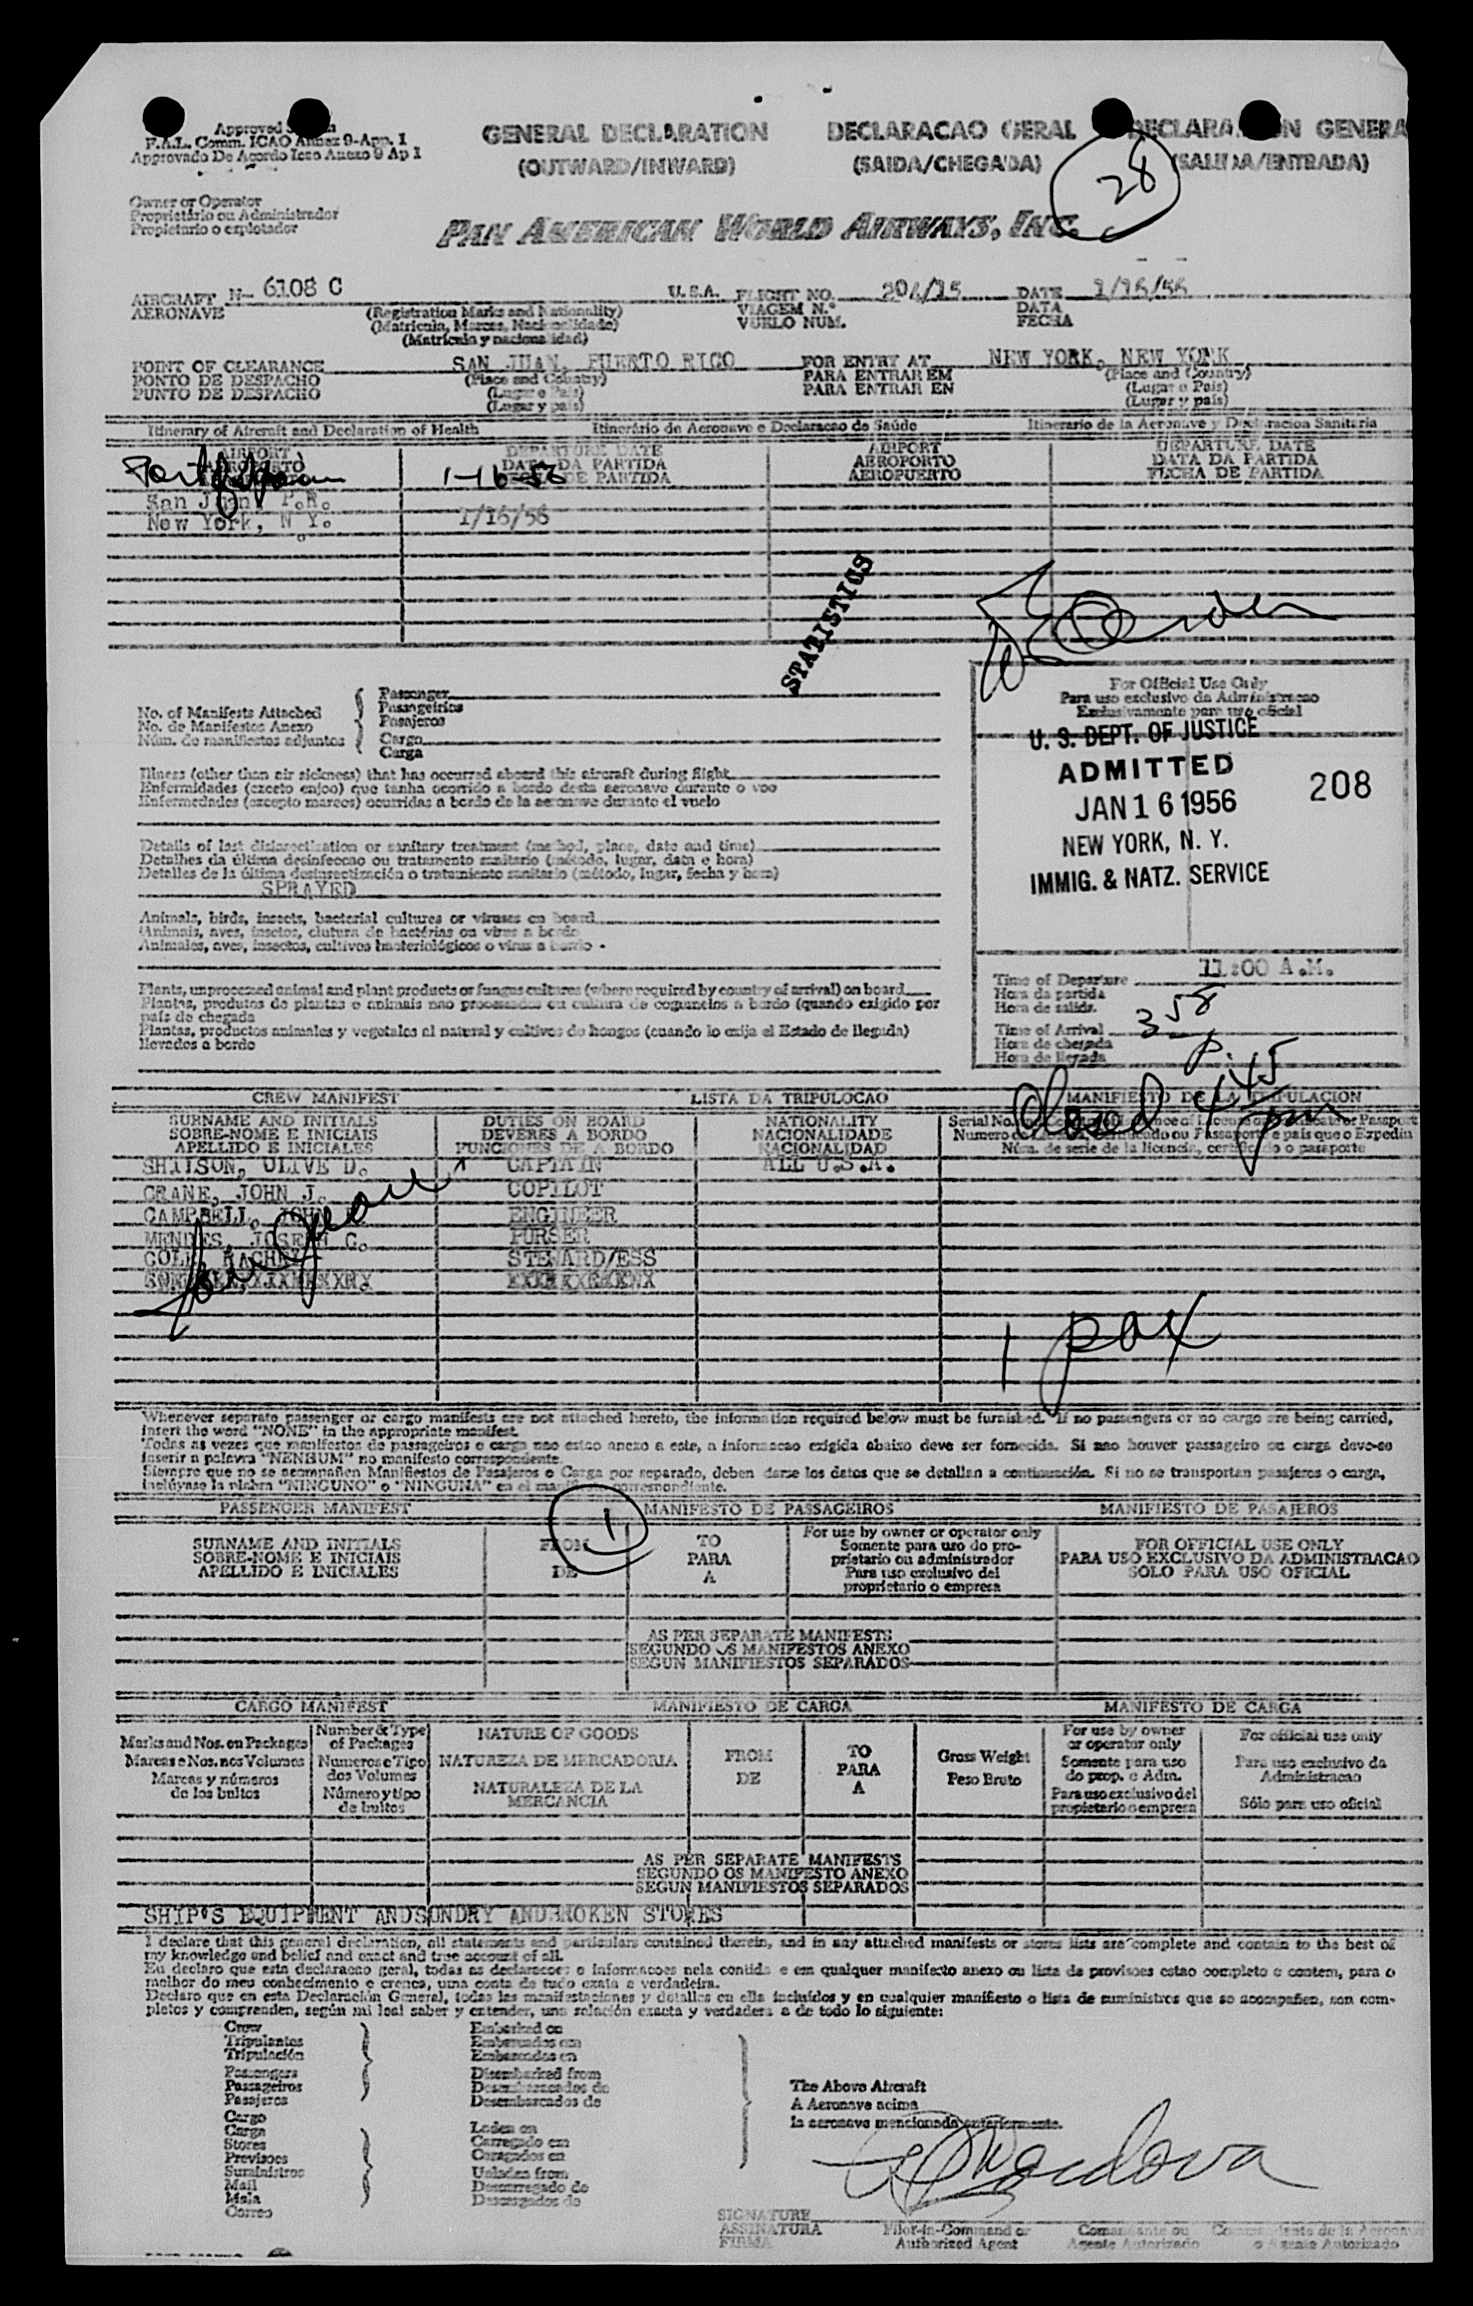 Approved
F.A.L. Comm. ICAO Annex 9-App. 1
Approvado De Acordo Icao Anexo 9 Ap 1
GENERAL DECLARATION
(OUTWARD/INWARD)
DECLARACAO GERAL
(SAIDA/CHEGADA)
GENERA
(SALIDA/ENTRADA)
28
Owner or Operator
Proprietário ou Administrador
Propietario o explotador
PAN AMERICAN WORLD AIRWAYS, INC.
AIRCRAFT N- 6108 C U.S.A. FLIGHT NO. DATE
AERONAVE (Registration Marks and Nationality) VIAGEM N.° DATA
(Matricula, Marcas, Nacionalidade) VUELO NUM. FECHA
(Matrícula y nacionalidad)
POINT OF CLEARANCE SAN JUAN, PUERTO RICO FOR ENTRY AT NEW YORK, NEW YORK
PONTO DE DESPACHO (Place and Country) PARA ENTRAR EM (Place and Country)
PUNTO DE DESPACHO (Lugar e País) PARA ENTRAR EN (Lugar e País)
(Lugar y país) (Lugar y país)
Itinerary of Aircraft and Declaration of Health Itinerário de Aeronave e Declaracao de Saúde Itinerario de la Aeronave y Declaracion Sanitaria
AIRPORT DEPARTURE DATE AIRPORT DEPARTURE DATE
DATA DA PARTIDA AEROPORTO DATA DA PARTIDA
DE PARTIDA AEROPUERTO FECHA DE PARTIDA
1-16-56
San Juan, P.R.
New York, N Y. 1/16/56
STATISTICS
No. of Manifests Attached
No. de Manifestos Anexo
Núm. de manifiestos adjuntos
Passenger
Passageiros
Pasajeros
Cargo
Carga
For Official Use Only
Para uso exclusivo da Administracao
Exclusivamente para uso oficial
U. S. DEPT. OF JUSTICE
ADMITTED
JAN 16 1956
NEW YORK, N. Y.
IMMIG. & NATZ. SERVICE
208
Illness (other than air sickness) that has occurred aboard this aircraft during flight
Enfermidades (exceto enjoo) que tenha ocorrido a bordo desta aeronave durante o voo
Enfermedades (excepto mareos) ocurridas a bordo de la aeronave durante el vuelo
Details of last disinsectization or sanitary treatment (method, place, date and time)
Detalhes da última desinfeccao ou tratamento sanitario (método, lugar, data e hora)
Detalles de la última desinsectización o tratamiento sanitario (método, lugar, fecha y hora)
SPRAYED
Animals, birds, insects, bacterial cultures or viruses on board
Animais, aves, insetos, clutura de bactérias ou virus a bordo
Animales, aves, insectos, cultivos bacteriológicos o virus a bordo
Plants, unprocessed animal and plant products or fungus cultures (where required by country of arrival) on board
Plantas, produtos de plantas e animais nao processados ou cultura de cogumelos a bordo (quando exigido por
país de chegada
Plantas, productos animales y vegetales al natural y cultivos de hongos (cuando lo exija el Estado de llegada)
llevados a bordo
Time of Departure 11:00 A.M.
Hora da partida
Hora de salida.
Time of Arrival 3 58 P.
Hora de chegada
Hora de llegada
Closed 4 45 pm
CREW MANIFEST LISTA DA TRIPULOCAO MANIFIESTO DE LA TRIPULACION
SURNAME AND INITIALS DUTIES ON BOARD NATIONALITY
SOBRE-NOME E INICIAIS DEVERES A BORDO NACIONALIDADE
APELLIDO E INICIALES FUNCIONES DE A BORDO NACIONALIDAD Núm. de serie de la licencia, certificado o pasaporte
OLIVE D. CAPTAIN ALL U.S.A.
CRANE, JOHN J. COPILOT
CAMPBELL, JOHN ENGINEER
MENDES, JOSEPH C. PURSER
STEWARD/ESS
San Juan
1 pax
Whenever separate passenger or cargo manifests are not attached hereto, the information required below must be furnished. If no passengers or no cargo are being carried,
insert the word "NONE" in the appropriate manifest.
Todas as vezes que manifestos de passageiros e carga nao estao anexo a este, a informacao exigida abaixo deve ser fornecida. Si nao houver passageiro ou carga deve-se
inserir a palavra "NENHUM" no manifesto correspondente.
Siempre que no se acompañen Manifiestos de Pasajeros o Carga por separado, deben darse los datos que se detallan a continuación. Si no se transportan pasajeros o carga,
inclúyase la plabra "NINGUNO" o "NINGUNA" en el manifiesto correspondiente.
PASSENGER MANIFEST MANIFESTO DE PASSAGEIROS MANIFIESTO DE PASAJEROS
1
SURNAME AND INITIALS
SOBRE-NOME E INICIAIS
APELLIDO E INICIALES
FROM
DE
TO
PARA
A
For use by owner or operator only
Somente para uso do pro-
prietario ou administrador
Para uso exclusivo del
proprietario o empresa
FOR OFFICIAL USE ONLY
PARA USO EXCLUSIVO DA ADMINISTRACAO
SOLO PARA USO OFICIAL
AS PER SEPARATE MANIFESTS
SEGUNDO OS MANIFESTOS ANEXO
SEGUN MANIFIESTOS SEPARADOS
CARGO MANIFEST MANIFIESTO DE CARGA MANIFESTO DE CARGA
Marks and Nos. on Packages
Marcas e Nos. nos Volumes
Marcas y números
de los bultos
Number & Type
of Packages
Numeros e Tipo
dos Volumes
Número y tipo
de bultos
NATURE OF GOODS
NATUREZA DE MERCADORIA
NATURALEZA DE LA
MERCANCIA
FROM
DE
TO
PARA
A
Gross Weight
Peso Bruto
For use by owner
or operator only
Somente para uso
do prop. e Adm.
Para uso exclusivo del
propietario o empresa
For official use only
Para uso exclusivo da
Administracao
Sólo para uso oficial
AS PER SEPARATE MANIFESTS
SEGUNDO OS MANIFESTO ANEXO
SEGUN MANIFIESTOS SEPARADOS
SHIP'S EQUIPMENT AND SUNDRY AND BROKEN STORES
I declare that this general declaration, all statements and particulars contained therein, and in any attached manifests or stores lists are complete and contain to the best of
my knowledge and belief and exact and true account of all.
Eu declaro que esta declaracao geral, todas as declaracoes e informacoes nela contida e em qualquer manifesto anexo ou lista de provisoes estao completo e contem, para o
melhor do meu conhecimento e crenca, uma conta de tudo exata e verdadeira.
Declaro que en esta Declaración General, todas las manifestaciones y detalles en ella incluidos y en cualquier manifiesto o lista de suministros que se acompañen, son com-
pletos y comprenden, según mi leal saber y entender, una relación exacta y verdadera a de todo lo siguiente:
Crew
Tripulantes
Tripulación
Passengers
Passageiros
Pasajeros
Cargo
Carga
Stores
Previsoes
Suministros
Mail
Mala
Correo
Embarked on
Embarcados em
Embarcados en
Disembarked from
Desembarcados de
Desembarcados de
Laden on
Carregado em
Caragados en
Unladen from
Descarregado de
Descargados de
The Above Aircraft
A Aeronave acima
la aeronave mencionada anteriormente.
SIGNATURE
ASSINATURA
FIRMA
Pilot-in-Command or
Authorized Agent
Comandante ou
Agente Autorizado
Comandante de la Aeronave
o Agente Autorizado